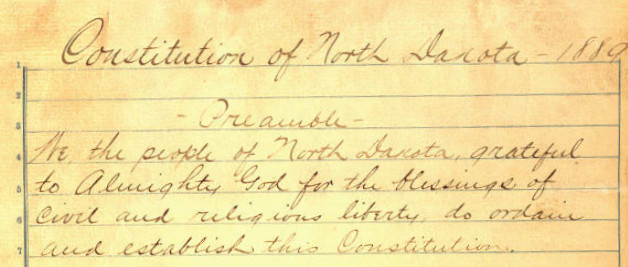 Constitution of North Dakota - 1889
1
2
- Preamble -
3
We, the people of North Dakota, grateful
4
to Almighty God for the blessings of
5
civil and religious liberty, do ordain
6
and establish this Constitution.
7